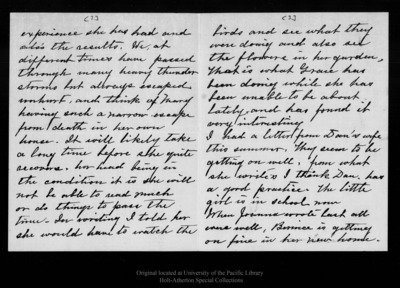 (5)
experience she has had and
also the results. We, at
different times have passed
through many heavy thunder
storms but always escaped
unhurt, and think of Mary
having such a narrow escape
from death in her own
house. It will likely take
a long time before she quite
recovers. her head being in
the condition it is she will
not be able to read much
or do things to pass the
time. In writing I told her
she would have to watch the
birds and see what they
were doing and also see
the flowers in her garden,
that is what Grace has
been doing while she has
been unable to be about
lately, and has found it
very interesting
I had a letter from Dan's wife
this summer. They seem to be
getting on well. from what
she writes I think Dan. has
a good practice The little
girl is in school now
When Joanna wrote last all
were well, Bernice is getting
on fine in her new home.
Original located at University of the Pacific Library
Holt-Atherton Special Collections